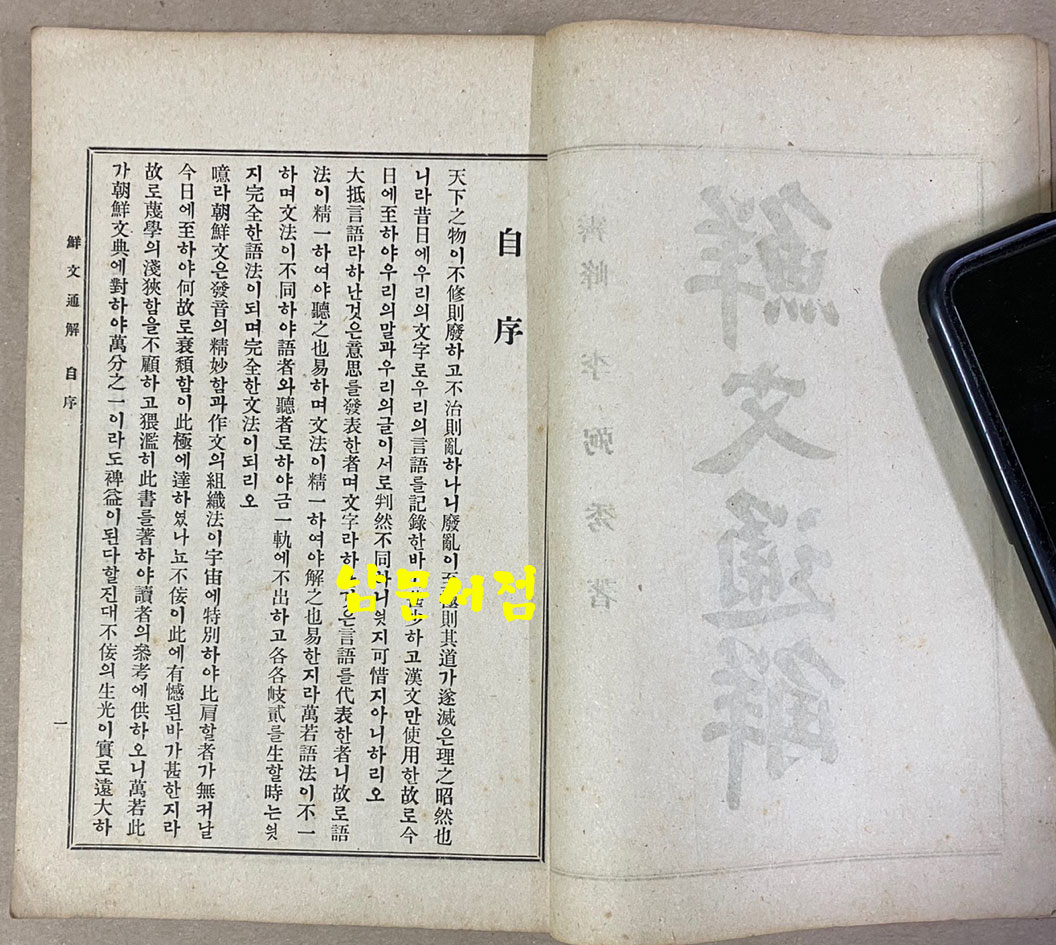 自序
天下之物이不修則廢하고不治則亂하나니廢亂이至則其道가遂滅은理之昭然也
니라昔日에우리의文字로우리의言語를記錄한바少하고漢文만使用한故로今
日에至하야우리의말과우리의글이서로判然不同하니읫지可惜지아니하리오
大抵言語라하난것은意思를發表한者며文字라하은言語를代表한者니故로語
法이精一하여야聽之也易하며文法이精一하여야解之也易한지라萬若語法이不一
하며文法이不同하야語者와聽者로하야금一軌에不出하고各各岐貳를生할時는읫
지完全한語法이되며完全한文法이되리오
噫라朝鮮文은發音의精妙함과作文의組織法이宇宙에特別하야比肩할者가無커날
今日에至하야何故로衰頹함이此極에達하였나뇨不侫이此에有憾된바가甚한지라
故로蔑學의淺狹함을不顧하고猥濫히此書를著하야讀者의叅考에供하오니萬若此
가朝鮮文典에對하야萬分之一이라도裨益이된다할진대不侫의生光이實로遠大하
鮮文通解 自序
一
남문서점
鮮文通解
李弼秀 著